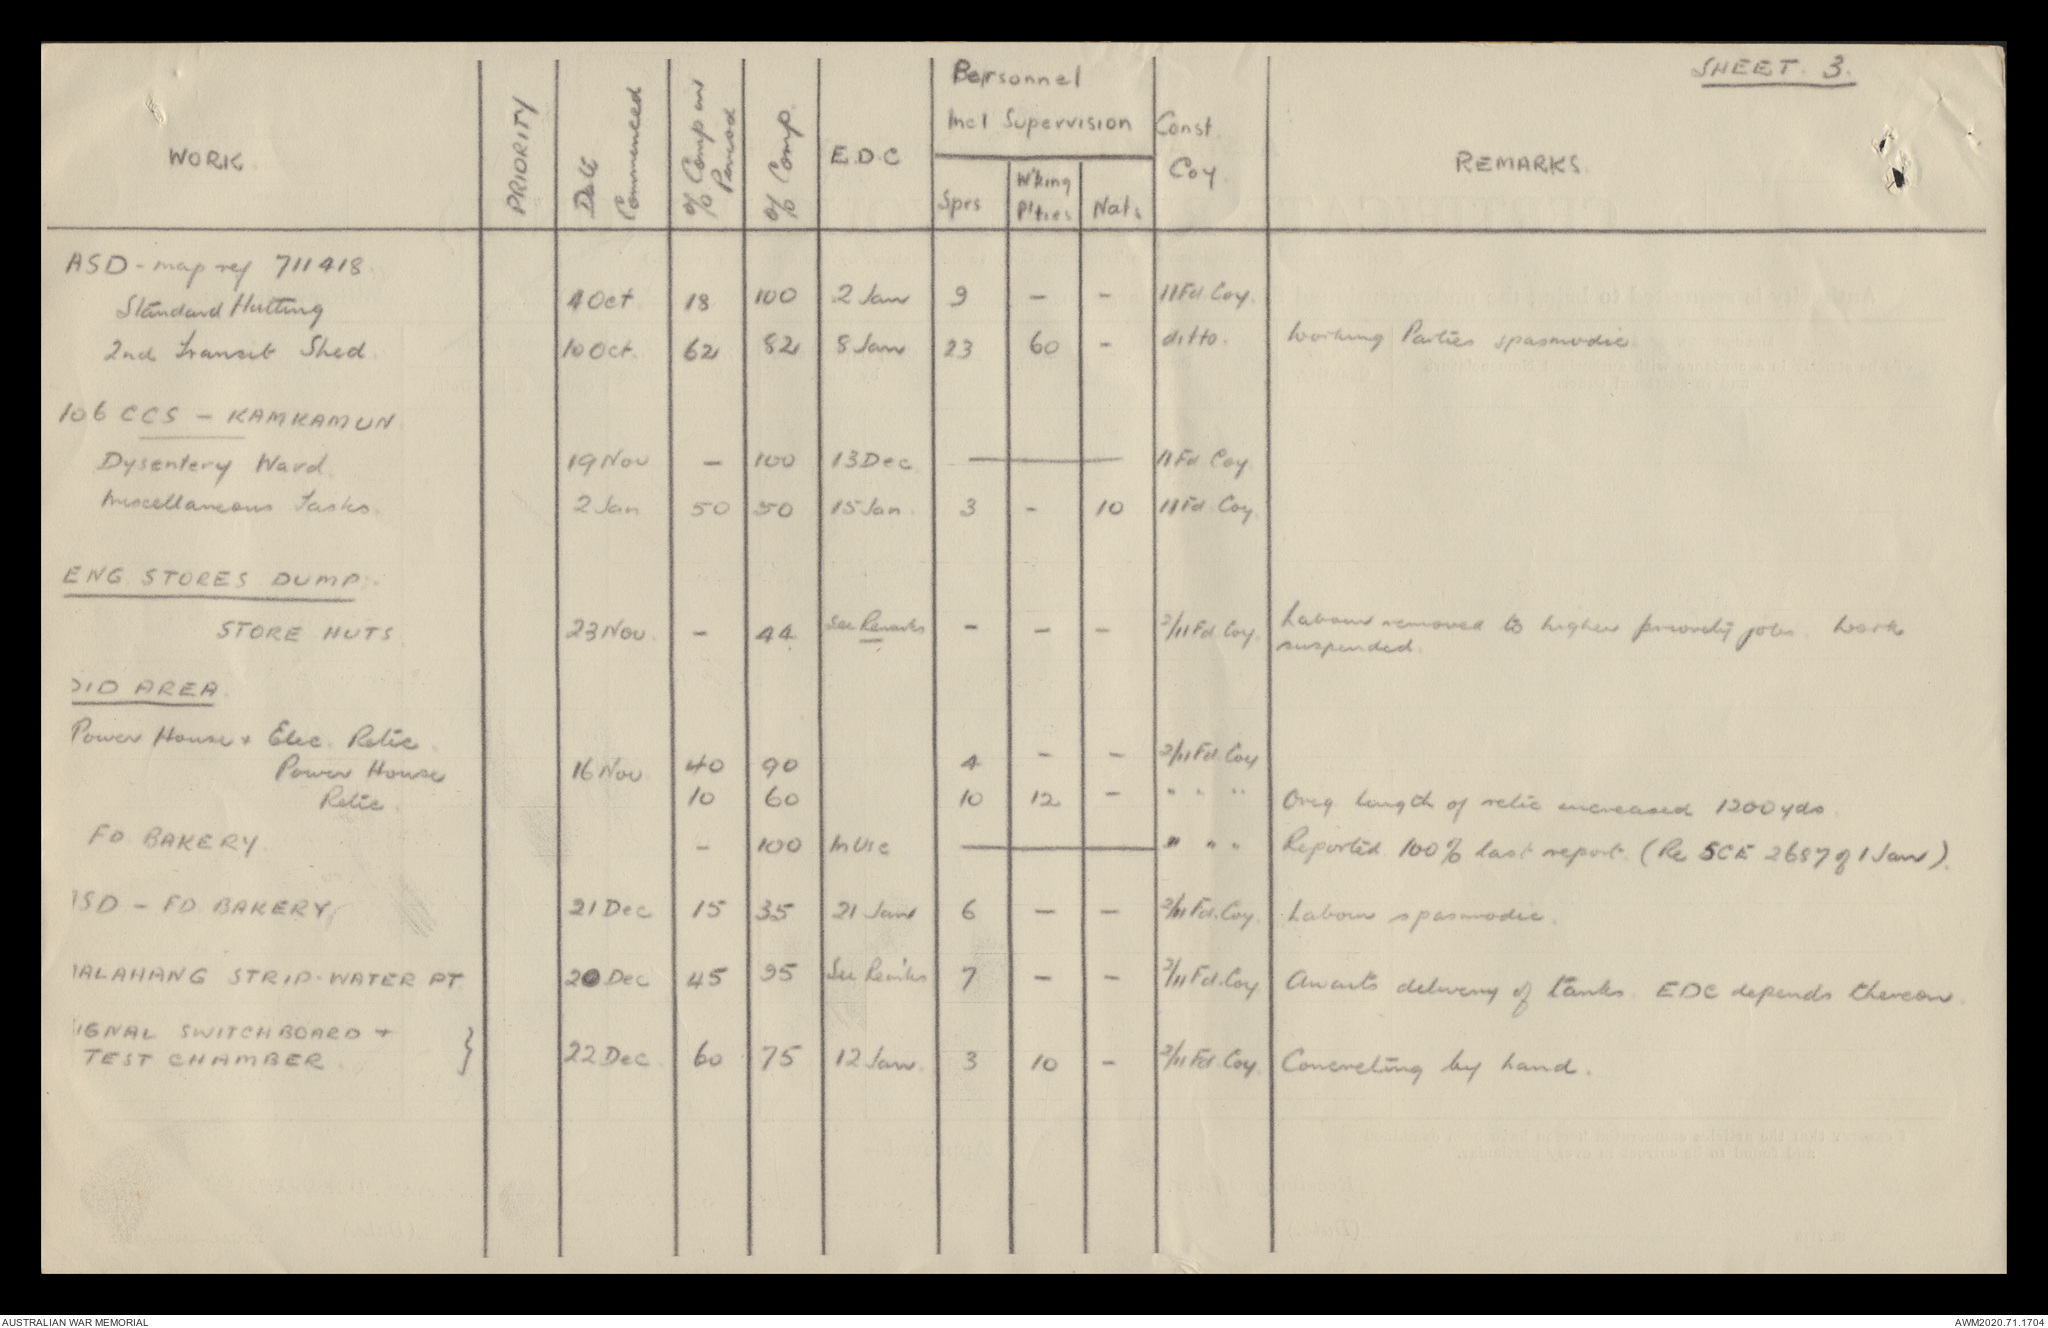 SHEET. 3.
WORK. PRIORITY Date Commenced % Comp in Period % Comp. E.D.C Personnel Incl Supervision Sprs W'king P'ties Nats Const. Coy. REMARKS.
ASD - map ref 711418
Standard Hutting 4 Oct 18 100 2 Jan 9 - - 11 Fd. Coy.
2nd Transit Shed. 10 Oct. 62 82 8 Jan 23 60 - ditto. Working Parties spasmodic
106 CCS - KAMKAMUN
Dysentery Ward. 19 Nov - 100 13 Dec. 11 Fd Coy.
Miscellaneous Tasks. 2 Jan 50 50 15 Jan. 3 - 10 11 Fd. Coy.
ENG. STORES DUMP.
STORE HUTS 23 Nov. - 44. See Remarks - - - 2/11 Fd. Coy. Labour removed to higher priority jobs. Work
suspended.
DID AREA.
Power House + Elec. Retic.
Power House 16 Nov. 40 90 4 - - 2/11 Fd. Coy
Retic. 10 60 10 12 - " " " Orig length of retic increased 1200 yds.
FD BAKERY. - 100 In Use " " " Reported 100% last report. (Re SCE 2687 of 1 Jan).
ASD - FD. BAKERY, 21 Dec 15 35 21 Jan 6 - - 2/11 Fd. Coy. Labour spasmodic.
MALAHANG STRIP - WATER PT. 20 Dec 45 95 See Rem'ks 7 - - 2/11 Fd. Coy Awaits delivery of tanks. EDC depends thereon.
SIGNAL SWITCHBOARD +
TEST CHAMBER. } 22 Dec. 60 75 12 Jan. 3 10 - 2/11 Fd. Coy. Concreting by hand.
AUSTRALIAN WAR MEMORIAL AWM2020.71.1704